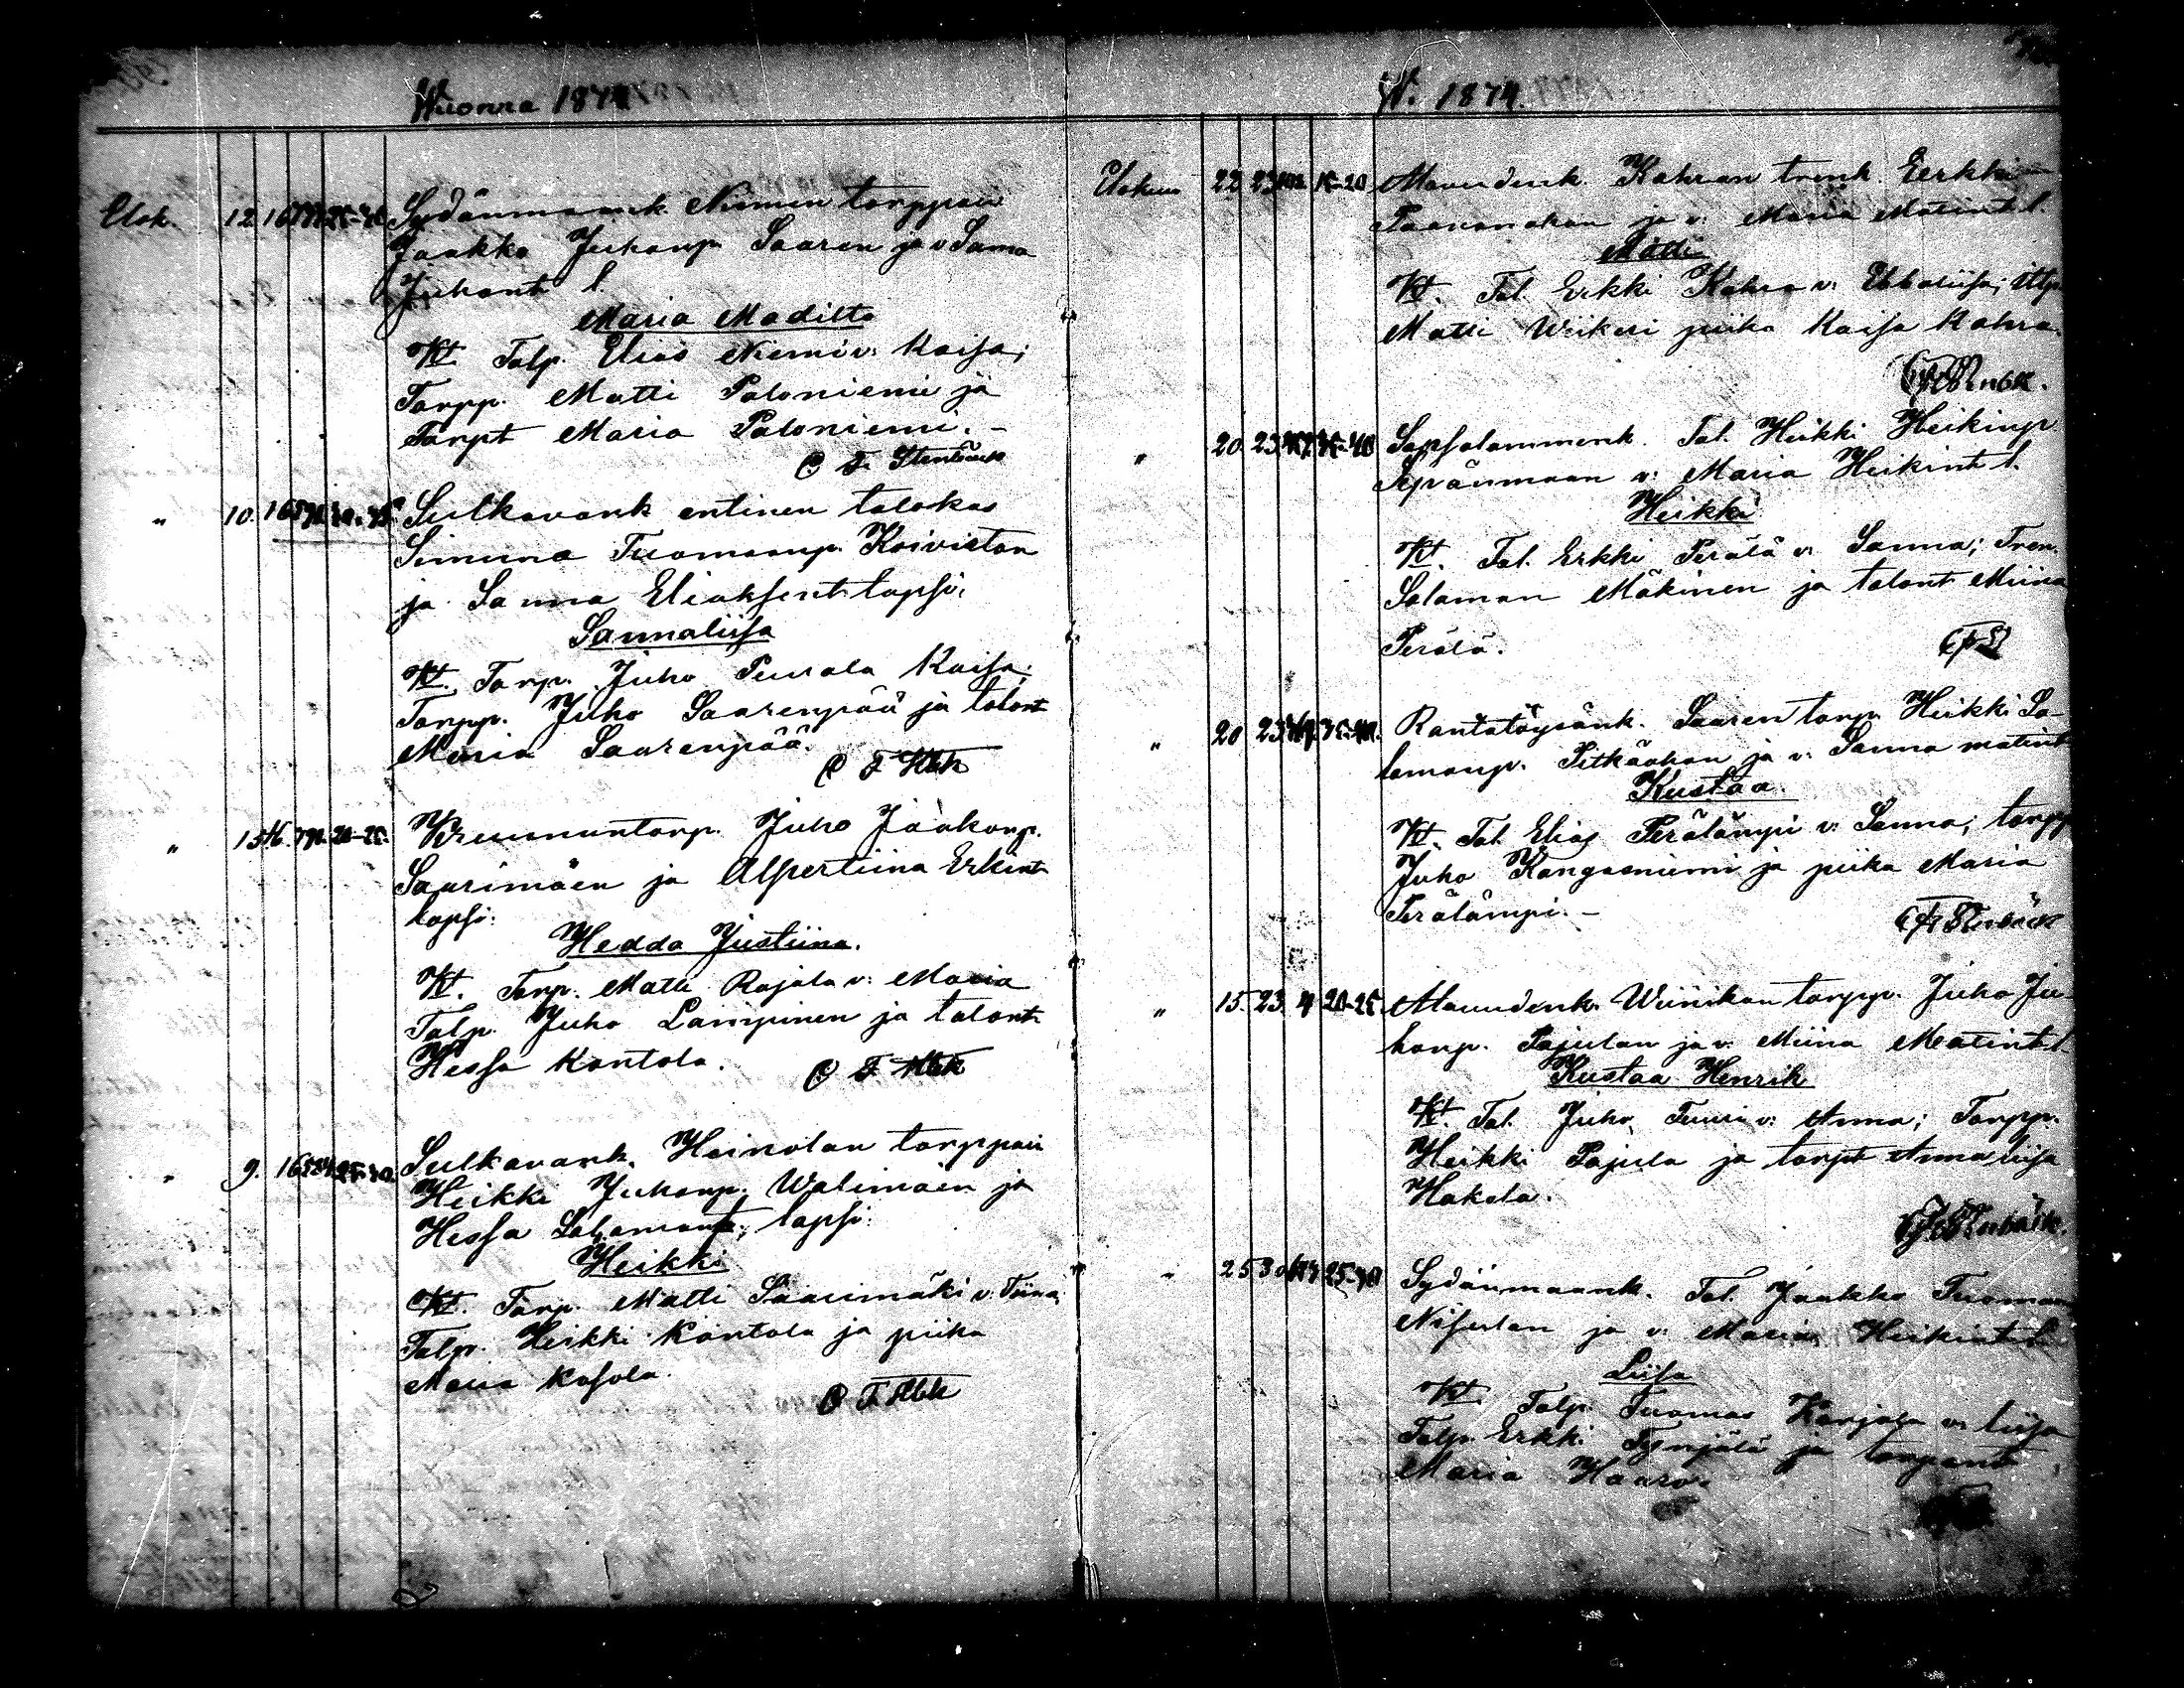 Wuonna 1874
Elok. 12. 16 25-30 Sydänmaank. Niemen torppari
Jaakko Juhonp. Saaren ja v. Sanna
Juhont. l.
Maria Madilta
Kt. Talp. Elias Niemi v: Kaisa;
Torpp. Matti Paloniemi ja
Torpt Maria Paloniemi. -
C F. Stenbäck
" 10. 16 Sulkavank entinen talokas
Simuna Tuomaanp. Koiviston
ja Sanna Eliaksent. lapsi:
Sannaliisa
Kt. Torp. Juho Peurala Kaisa;
Torpp. Juho Saarenpää ja talont
Maria Saarenpää.
C F Stbk
" 15 16. 20-25. Juho Jaakonp.
Saarimäen ja Alpertiina Erkint
lapsi:
Hedda Justiina.
Kt. Torp. Matti Rajala v: Maria
Talp. Juho Lampinen ja talont
Hessa Kontola.
C F Stbk
" 9. 16 25-30. Sulkavank. Heinolan torppari
Heikki Juhonp. Walimäen ja
Hessa Salamont. lapsi:
Heikki
Kt. Torp. Matti Saarimäki v. Tiina;
Talp. Heikki Kontola ja piika
Maria Kasola.
C F Stbk
W. 1874.
Elokuu 22 23 15-20 Alavudenk. Kahran trenk. Eerkki
ja v: Maria Matint l.
Matti
Kt. Tal. Erkki Kahra v: Ebbaliisa; Itp.
Matti Weikeri piika Kaisa Kahra.
" 20. 23 35-40 Sapsalammenk. Tal. Heikki Heikinp
Sepänmaan v: Maria Heikint l.
Heikki
Kt. Tal. Erkki Perälä v: Sanna; Tren.
Salamon Mäkinen ja talont Miina
Perälä.
" 20 23 35-40. Rantatöysänk. Saaren torp. Heikki Sa-
lamonp. Pitkäahon ja v: Sanna matint
Kustaa.
Kt. Tal. Elias Perälämpi v: Sanna; torpp
Juho Kangasniemi ja piika Maria
Perälämpi. -
C F Stenbäck
" 15. 23 4 20-25. Alavudenk. Wiinikan torpp. Juho Ju-
honp. Pajulan ja v: Miina Matint l.
Kustaa Henrik
Kt. Tal. Juho Tuuri v: Anna; Torpp.
Heikki Pajula ja torpt Annaliisa
Hakola.
C F Stenbäck.
" 25 30 25-30 Sydänmaank. Tal. Jaakko Tuoman
ja v: Maria Heikint l.
Liisa
Kt. Talp. Tuomas Karjala v: Liisa
Talp. Erkki Tynjälä ja torpant
Maria Haaro.